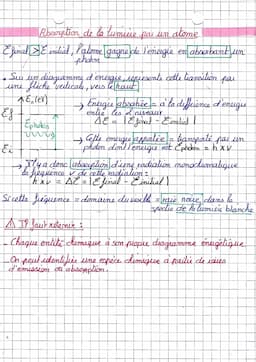 Absorption de la lumière par un atome
E final > E initial, l'atome gagne de l'énergie en absorbant un
photon
• Sur un diagramme d'énergie, représente cette transition par
une flèche verticale, vers le haut.
↑ Eₙ (eV)
→ Energie absorbée = à la différence d'énergie
entre les 2 niveaux
Ef
ΔE = | E final - E initial |
E photon
→ Cette énergie apportée = transporté par un
photon dont l'énergie est E photon = h x ν
Ei
→ Il y a donc absorption d'une radiation monochromatique
de fréquence ν de cette radiation :
h x ν = ΔE = | E final - E initial |
Si cette fréquence = domaine du visible = raie noire dans le
spectre de la lumière blanche
⚠ Il faut retenir :
- Chaque entité chimique a son propre diagramme énergétique
- On peut identifier une espèce chimique à partir de raies
d'émission ou absorption.